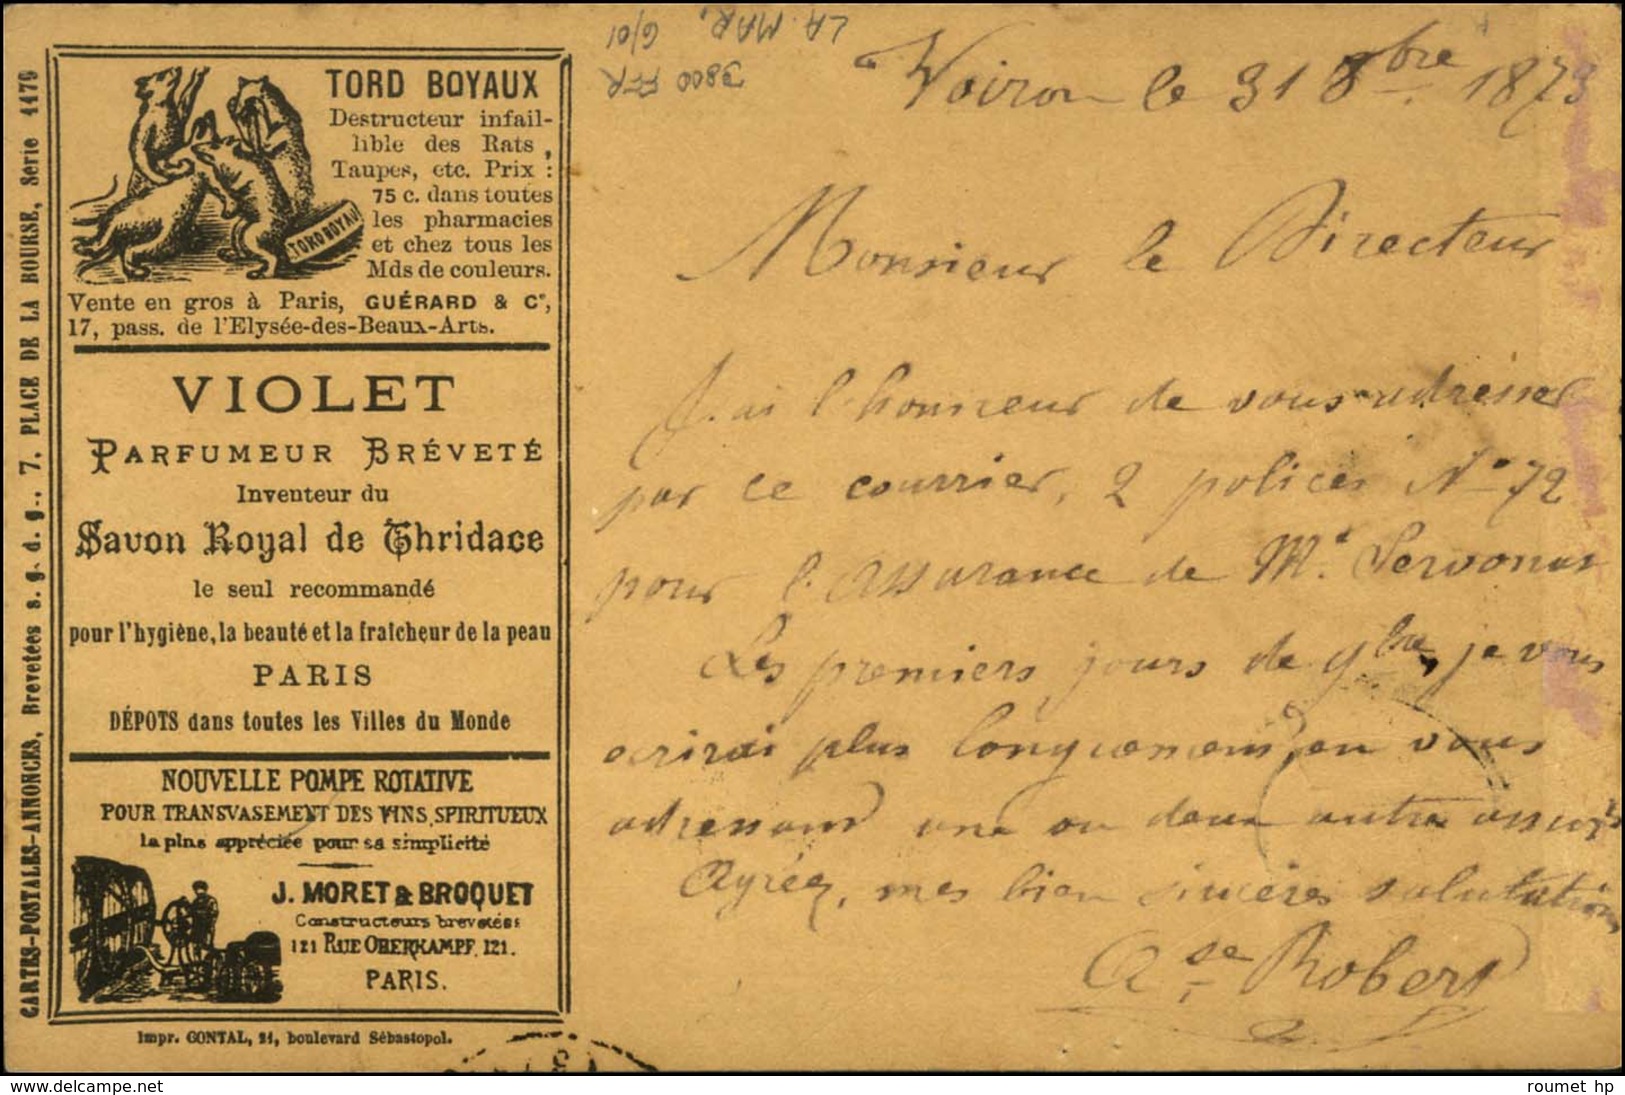 CARTES-POSTALES-ANNONCES, Brevetées s. g. d. g., 7, PLACE DE LA BOURSE, Série 1179
TORD BOYAUX
Destructeur infail-
lible des Rats,
Taupes, etc. Prix :
75 c. dans toutes
les pharmacies
et chez tous les
Mds de couleurs.
TORD BOYAU
Vente en gros à Paris, GUÉRARD & Ce,
17, pass. de l'Elysée-des-Beaux-Arts.
VIOLET
PARFUMEUR BRÉVETÉ
Inventeur du
Savon Royal de Thridace
le seul recommandé
pour l'hygiène, la beauté et la fraîcheur de la peau
PARIS
DÉPOTS dans toutes les Villes du Monde
NOUVELLE POMPE ROTATIVE
POUR TRANSVASEMENT DES VINS, SPIRITUEUX
la plus appréciée pour sa simplicité
J. MORET & BROQUET
Constructeurs brevetés
121 RUE OBERKAMPF, 121.
PARIS.
Impr. GONTAL, 21, boulevard Sébastopol.
LA MAR.
6/01
3800 FFR
Voiron le 31 8bre 1873
Monsieur le Directeur
J'ai l'honneur de vous adresser
par ce courrier, 2 polices No 72
pour l'assurance de Mr Servonat
Les premiers jours de 9bre, je vous
écrirai plus longuement, en vous
adressant une ou deux autre assurés
Agréez, mes bien sincères salutations
Ase Robert
roumet hp